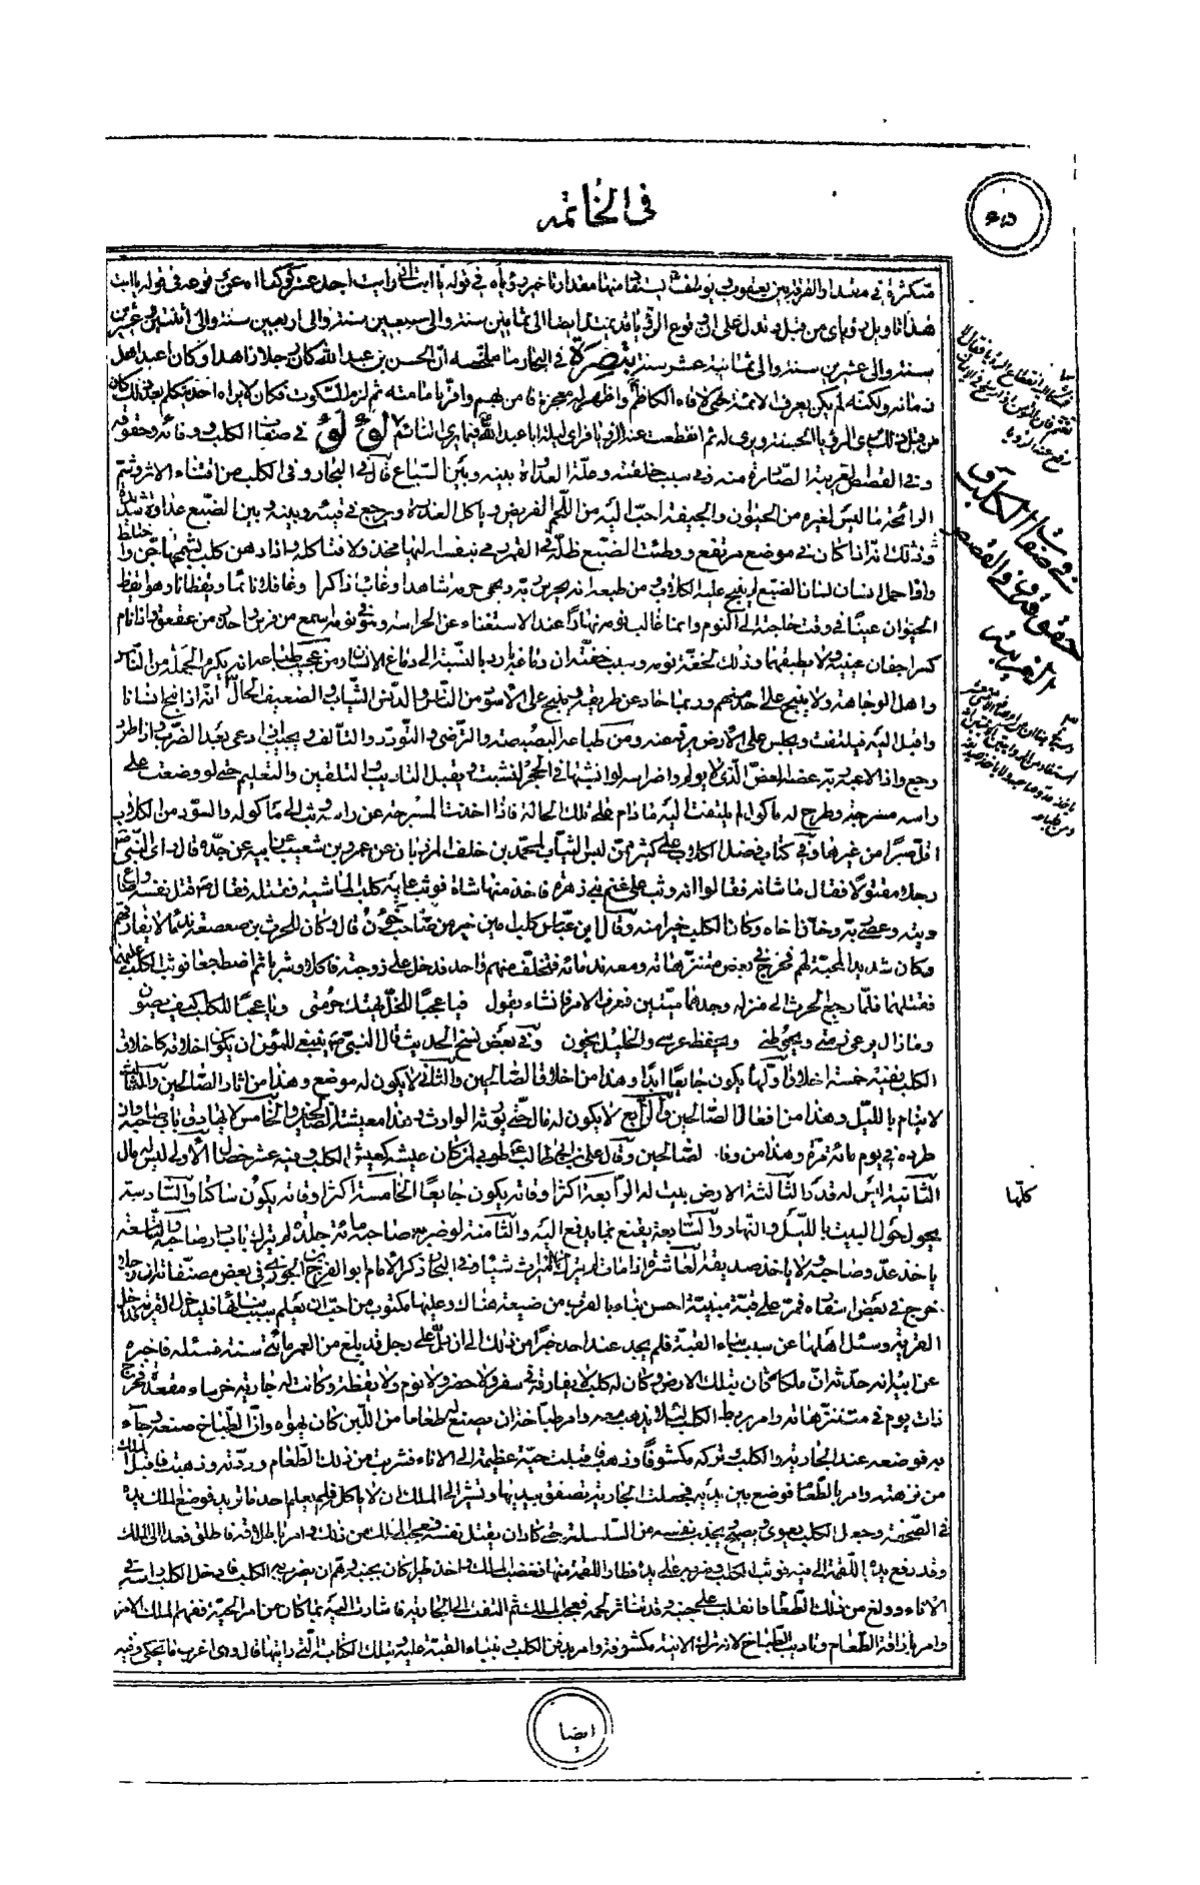 في الخاتمة
هذا تاويل رؤياي من قبل وتدل على ان وقوع الرؤيا قد يمتد ايضا الى ثمانين سنة والى سبعين سنة والى اربعين سنة والى اثنتين وعشرين
سنة والى عشرين سنة والى ثمانية عشر سنة تبصرة في البحار ما ملخصه ان الحسن بن عبد الله كان رجلا زاهدا وكان اعبد اهل
زمانه ولكنه لم يكن يعرف الائمة فلاقاه الكاظم واظهر له معجزة فامن بهم واقر بامامته ثم لزم السكوت فكان لا يراه احد يتكلم بعد ذلك وكان
من قبل ذلك يرى الرؤيا الحسنة ويرى له ثم انقطعت عنه الرؤيا فراى ليلة ابا عبد الله فيما يرى النائم لؤلؤ في صفات الكلب ووفائه وحقوقه
وفي القصص الغريبة الصادرة منه وفي سبب خلقته وعلة العداوة بينه وبين السباع قال في البحار وفي الكلب من اقتفاء الاثر وشم
الرائحة ما ليس لغيره من الحيوان والجيفة احب اليه من اللحم الغريض وياكل العذرة ويرجع في قيئه وبينه وبين الضبع عداوة شديدة
وذلك انه اذا كان في موضع مرتفع ووطئت الضبع ظله في القمر رمى بنفسه اليها مخذولا فتاكله واذا دهن كلب بشحمها جن واختلط
واذا حمل انسان لسان الضبع لم ينبح عليه الكلاب ومن طبعه انه يحرس ربه ويحمي حرمه شاهدا وغائبا ذاكرا وغافلا نائما ويقظانا وهو ايقظ
الحيوان عينا في وقت حاجته الى النوم وانما غالب نومه نهارا عند الاستغناء عن الحراسة وهو في نومه اسمع من فرس واحذر من عقعق واذا نام
كسر اجفان عينيه ولا يطبقهما وذلك لخفة نومه وسبب خفته ان دماغه بارد بالنسبة الى دماغ الانسان ومن عجيب طباعه انه يكرم الجلة من الناس
واهل الوجاهة ولا ينبح على احد منهم وربما حاد عن طريقه وينبح على الاسود من الناس والدنس الثياب والضعيف الحال
رجع واذا لاعبه ربه عضه العض الذي لا يؤلم واضراسه لو انشبها في الحجر لنشبت ويقبل التاديب والتلقين والتعليم حتى لو وضعت على
راسه مسرجة وطرح له ماكول لم يلتفت اليه ما دام على تلك الحالة فاذا اخذت المسرجة عن راسه وثب الى ماكوله والسود من الكلاب
اقل صبرا من غيرها وفي كتاب فضل الكلاب على كثير ممن لبس الثياب لمحمد بن خلف المرزبان عن عمرو بن شعيب عن ابيه عن جده قال راى النبي
رجلا مقتولا فقال ما شانه فقالوا انه وثب على غنم بني زهرة فاخذ منها شاة فوثب عليه كلب الماشية فقتله فقال ص قتل نفسه واضاع
ديته وعصى ربه وخان اخاه وكان الكلب خيرا منه وقال ابن عباس كلب امين خير من صاحب خؤون قال وكان للحرث بن صعصعة ندماء لا يفارقهم
وكان شديد المحبة لهم فخرج في بعض متنزهاته ومعه ندمائه فتخلف منهم واحد فدخل على زوجته فاكلا وشربا ثم اضطجعا فوثب الكلب عليهما
فقتلهما فلما رجع الحرث الى منزله وجدهما ميتين فعرف الامر فانشاء يقول فيا عجبا للخل يهتك حرمتي ويا عجبا للكلب كيف يصون
وما زال يرعى ذمتي ويحوطني ويحفظ عرسي والخليل يخون وفي بعض نسخ الحديث قال النبي ص ينبغي للمؤمن ان يكون اخلاقه كاخلاق
الكلب فيه خمسة اخلاق اولها يكون جايعا ابدا وهذا من اخلاق الصالحين والثاني لا يكون له موضع وهذا من اثار الصالحين والثالث
لا ينام بالليل وهذا من افعال الصالحين والرابع لا يكون له مال حتى يرثه الوارث
طرده في يوم مائة مرة وهذا من وفاء الصالحين وقال علي بن ابي طالب طوبى لمن كان عيشه كعيش الكلب وفيه عشر خصال الاولى ليس له مال
الثانية ليس له قدر الثالثة الارض بيت له الرابعة اكثر اوقاته يكون جايعا الخامسة اكثر اوقاته يكون ساكتا والسادسة
يجول حول البيت بالليل والنهار والسابعة يقنع بما يدفع اليه والثامنة لو ضربه صاحبه مائة جلدة لم يترك باب دار صاحبه والتاسعة
ياخذ عدو صاحبه ولا ياخذ صديقه العاشرة اذا مات لم يترك من الميراث شيئا وفي البحار ذكر الامام ابو الفرج بن الجوزي في بعض مصنفاته ان رجلا
خرج في بعض اسفاره فمر على قبة مبنية احسن بناء بالقرب من ضيعة هناك وعليها مكتوب من احب ان يعلم سبب بنائها فليدخل القرية فدخل
القرية وسئل اهلها عن سبب بناء القبة فلم يجد عند احد خبرا من ذلك الى ان دل على رجل قد بلغ من العمر مائتي سنة فسئله فاخبره
عن ابيه انه حدثه ان ملكا كان بتلك الارض وكان له كلب لا يفارقه في سفر ولا حضر ولا نوم ولا يقظة وكانت له جارية خرساء مقعدة فخرج
ذات يوم في متنزهاته وامر بربط الكلب لئلا يذهب معه وامر طباخه ان يصنع له طعاما من اللبن كان يهواه وان الطباخ صنعه وجاء
به فوضعه عند الجارية والكلب وتركه مكشوفا وذهب فاقبلت حية عظيمة الى الاناء فشربت من ذلك الطعام وردته وذهبت فاقبل الملك
من نزهته وامر بالطعام فوضع بين يديه فجعلت الجارية تصفق بيديها وتشير الى الملك ان لا ياكل فلم يعلم احد ما تريد فوضع الملك يده
في الصحفة وجعل الكلب يعوي ويصيح ويجذب نفسه من السلسلة حتى كاد ان يقتل نفسه فعجب الملك من ذلك وامر باطلاقه فاطلق فعدا الى الملك
وقد رفع يده باللقمة الى فيه فوثب الكلب وضربه على يده فطارت اللقمة منها فغضب الملك واخذ طبرا كان بجنبه وهم ان يضرب به الكلب فادخل الكلب راسه في
الاناء وولغ من ذلك الطعام فانقلب على جنبه وقد تناثر لحمه فعجب الملك ثم التفت الى الجارية فاشارت اليه بما كان من امر الحية ففهم الملك الامر
وامر باراقة الطعام وتاديب الطباخ لانه ترك الانية مكشوفة وامر بدفن الكلب وببناء القبة عليه وبتلك الكتابة التي رايتها قال وهي اغرب ما يحكى وفيه
ايضا
في صفات الكلب و
حقوقه وفي القصص
الغريبة
كلها